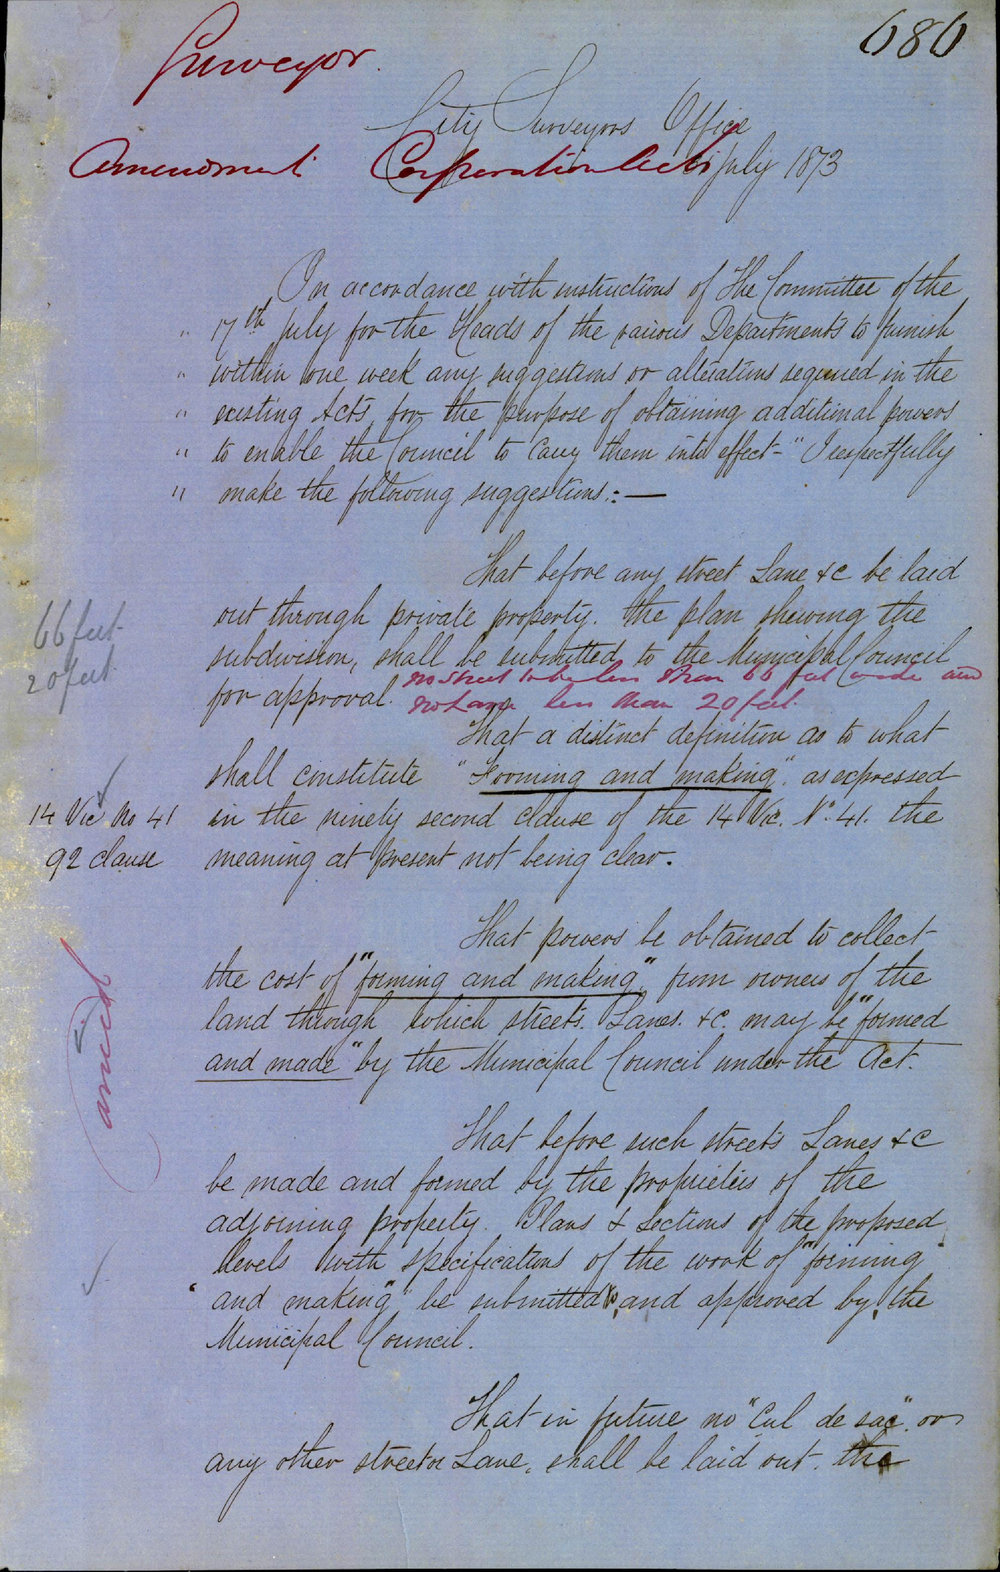 686
Surveyor
City Surveyors Office
Amendment Corporation Acts July 1873
On accordance with instructions of the Committee of the
" 17th July for the Heads of the various Departments to furnish
" within one week any suggestions or alterations required in the
" existing Acts for the purpose of obtaining additional powers
" to enable the Council to carry them into effect-" I respectfully
" make the following suggestions:—
That before any street Lane &c be laid
out through private property. the plan shewing the
66 feet
subdivision, shall be submitted to the Municipal Council
20 feet
for approval. no street to be less than 66 feet wide and
no Lane less than 20 feet.
That a distinct definition as to what
shall constitute "Forming and making". as expressed
14 Vic No 41 in the ninety second clause of the 14 Vic. No. 41. the
92 clause meaning at present not being clear.
That powers be obtained to collect
the cost of "forming and making" from owners of the
land through which streets. Lanes. &c. may be "formed
and made" by the Municipal Council under the Act.
carried
That before such streets Lanes &c
be made and formed by the proprietors of the
adjoining property. Plans & Sections of the proposed
levels with specifications of the work of "forming
" and making", be submitted to, and approved by, the
Municipal Council.
That in future no "Cul de sac". or
any other street or Lane, shall be laid out. the